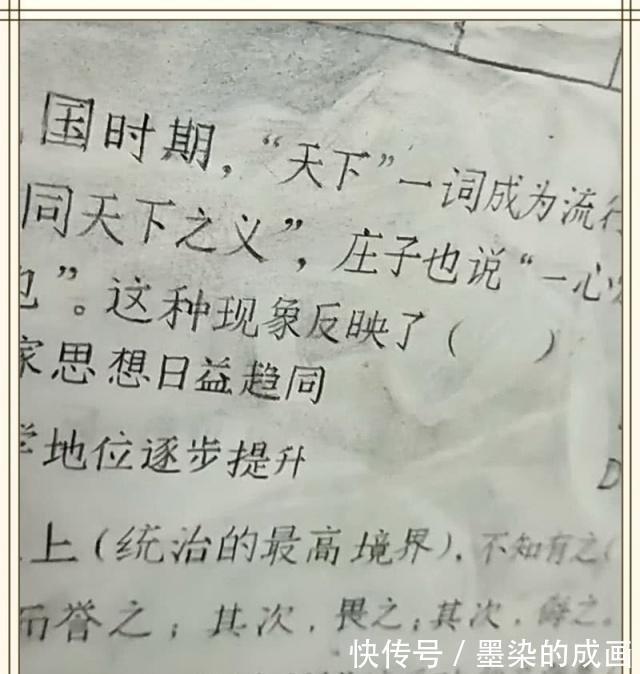 国时期，“天下”一词成为流行
同天下之义”，庄子也说“一心
也”。这种现象反映了（　　）
家思想日益趋同
学地位逐步提升
D
上（统治的最高境界），不知有之（
而誉之；其次，畏之；其次，侮之。
快传号 / 墨染的成画